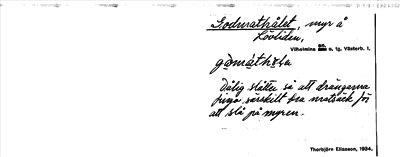 Godmathålet, myr å
Lövliden,
Vilhelmina sn. o. tg. Västerb. l.
Dålig slåtter så att drängarna
fingo särskilt bra matsäck för
att slå på myren.
Thorbjörn Eliasson, 1934.